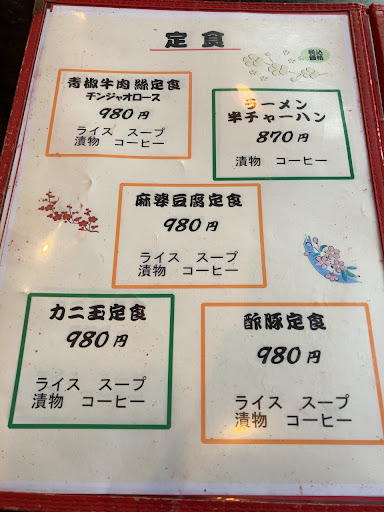 定食
税込
価格
青椒牛肉絲定食
チンジャオロース
980円
ライス スープ
漬物 コーヒー
ラーメン
半チャーハン
870円
漬物 コーヒー
麻婆豆腐定食
980円
ライス スープ
漬物 コーヒー
カニ玉定食
980円
ライス スープ
漬物 コーヒー
酢豚定食
980円
ライス スープ
漬物 コーヒー